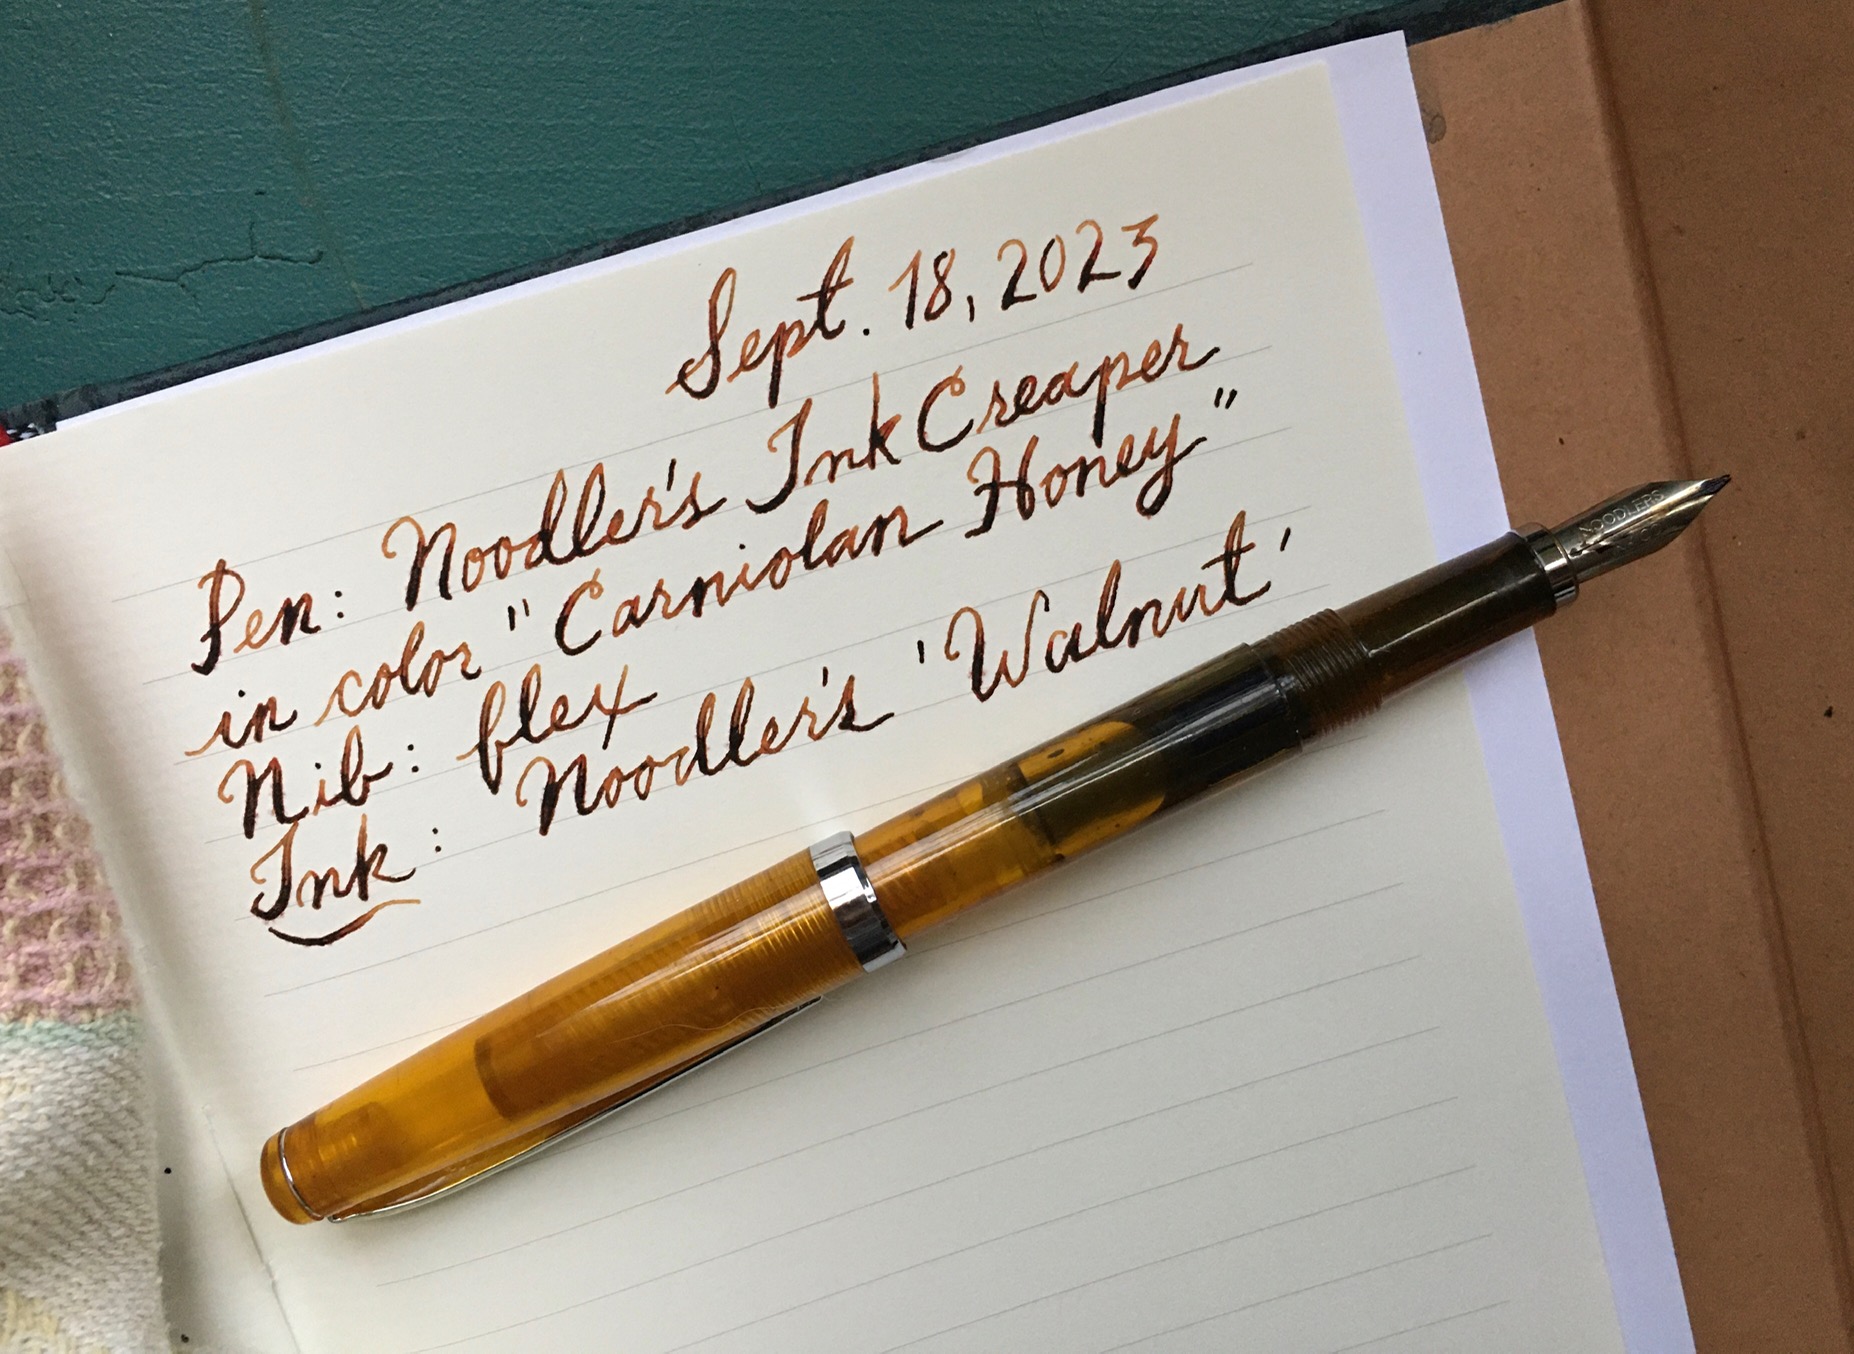 Sept. 18, 2023
Pen: Noodler's Ink Creaper
in color "Carniolan Honey"
Nib: flex
Ink: Noodler's 'Walnut'
NOODLERS